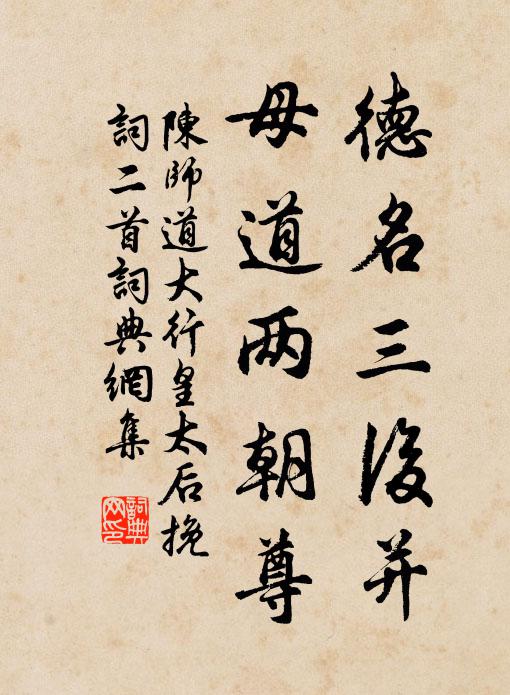 德名三後并
母道两朝尊
陳師道大行皇太后挽
詞二首詞典網集
詞典网印